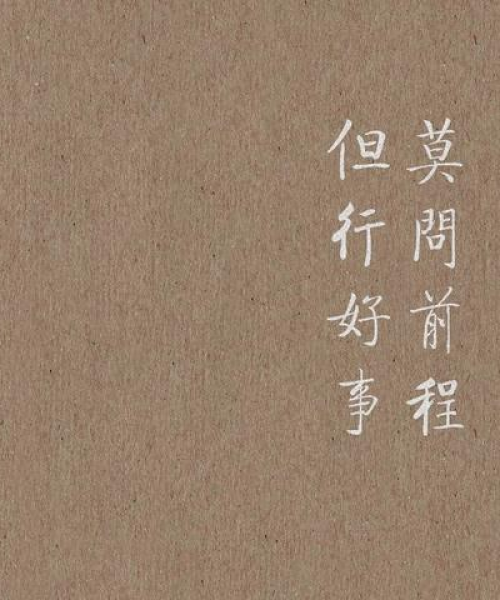 莫問前程
但行好事